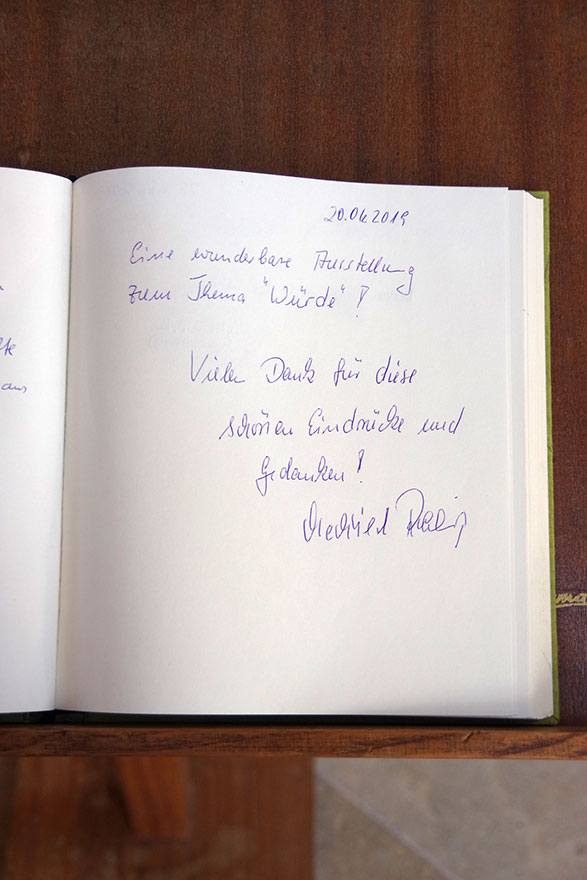 20.04.2019
Eine wunderbare Ausstellung
zum Thema "Würde"!
Vielen Dank für diese
schönen Eindrücke und
Gedanken!